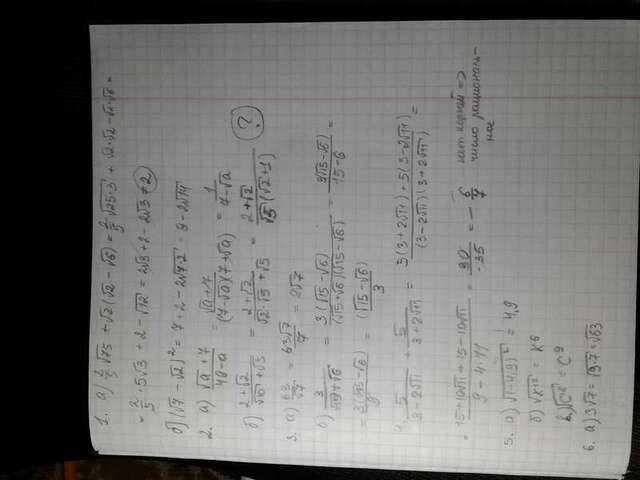 1. а) 2/5 √75 + √2(√2 - √6) = 2/5 √25·3 + √2·√2 - √2·√6 =
= 2/5 · 5√3 + 2 - √12 = 2√3 + 2 - 2√3 = 2
б) (√7 - √2)² = 7 + 2 - 2√7·2 = 9 - 2√14
2. а) (√a + 7)/(49 - a) = (√a + 7)/((7 - √a)(7 + √a)) = 1/(7 - √a)
б) (2 + √2)/(√10 + √5) = (2 + √2)/(√2·√5 + √5) = (2 + √2)/(√5(√2 + 1)) ?
3. а) 63/√7 = 63√7/7 = 9√7
б) 3/(√15 + √6) = 3(√15 - √6)/((√15 + √6)(√15 - √6)) = 3(√15 - √6)/(15 - 6) =
= 3(√15 - √6)/9 = (√15 - √6)/3
4. 5/(3 - 2√11) + 5/(3 + 2√11) = (5(3 + 2√11) + 5(3 - 2√11))/((3 - 2√11)(3 + 2√11)) =
= (15 + 10√11 + 15 - 10√11)/(9 - 4·11) = 30/-35 = - 6/7 нет корней =>
число рациональ-
ное
5. а) √(-4,9)² = 4,9
б) √x¹² = x⁶
в) √c¹⁸ = c⁹
6. а) 3√7 = √9·7 = √63